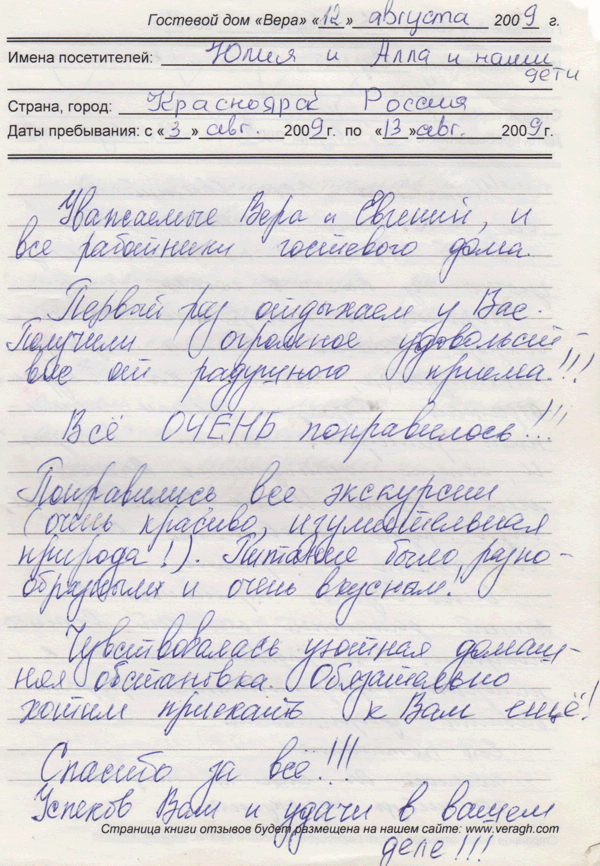 Гостевой дом «Вера» «12» августа 2009 г.
Имена посетителей: Юлия и Алла и наши
дети
Страна, город: Красноярск Россия
Даты пребывания: с «3» авг. 2009 г. по «13» авг. 2009 г.
Уважаемые Вера и Евгений, и
все работники гостевого дома.
Первый раз отдыхаем у Вас.
Получили огромное удовольст-
вие от радушного приема!!!
Всё ОЧЕНЬ понравилось!!!
Понравились все экскурсии
(очень красиво, изумительная
природа!). Питание было разно-
образным и очень вкусным!
Чувствовалась уютная домаш-
няя обстановка. Обязательно
хотим приехать к Вам ещё!
Спасибо за всё!!!
Успехов Вам и удачи в вашем
Страница книги отзывов будет размещена на нашем сайте: www.veragh.com
деле!!!